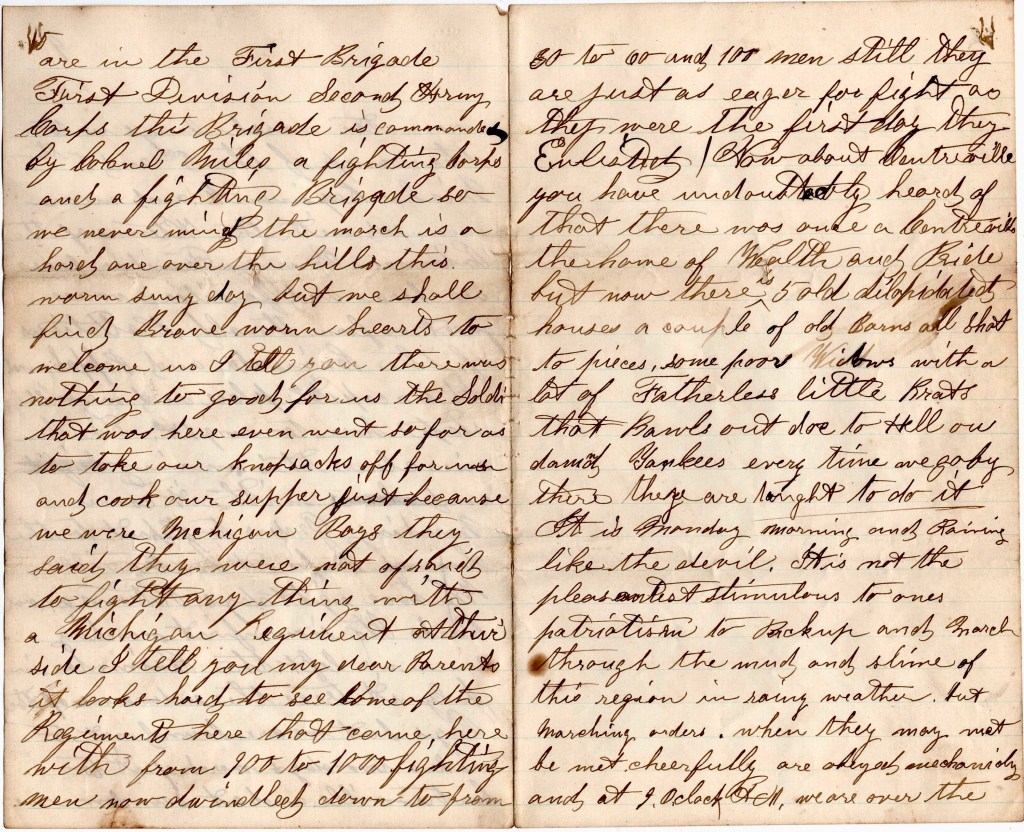 are in the First Brigade
First Division Second Army
Corps this Brigade is commanded
by Colonel Miles a fighting Corps
and a fighting Brigade so
we never mind the march is a
hard one over the hills this
warm sung day but we shall
find Brave warm hearts to
welcome us I tell you there was
nothing to good for us the Soldi
that was here even went so far as
to take our knapsacks off for us
and cook our supper just because
we were Mchigan Boys they
said they were not afraid
to fight any thing with
a Michigan Regiment at their
side I tell you my dear Parents
it looks hard to see some of the
Regiments here that came here
with from 900 to 1000 fighting
men now dwindled down to from
30 to 60 and 100 men still they
are just as eager for fight as
they were the first day they
Enlisted / Now about Centreville
you have undoubtedly heard of
that there was once a Centreville
the home of Wealth and Pride
but now there is 5 old dilapidated
houses a couple of old Barns all shot
to pieces, some poor Widows with a
lot of Fatherless little Brats
that Bawls out doc to Hell ou
damnd Yankees every time we go by
there they are taught to do it
It is Monday morning and Raining
like the devil. It is not the
pleasantest stimulous to ones
patriotism to Backup and March
through the mud and slime of
this region in rainy weather. but
Marching orders. when they may not
be met cheerfully are obeyed mechanicly
and at 9. Oclock A.M, we are over the